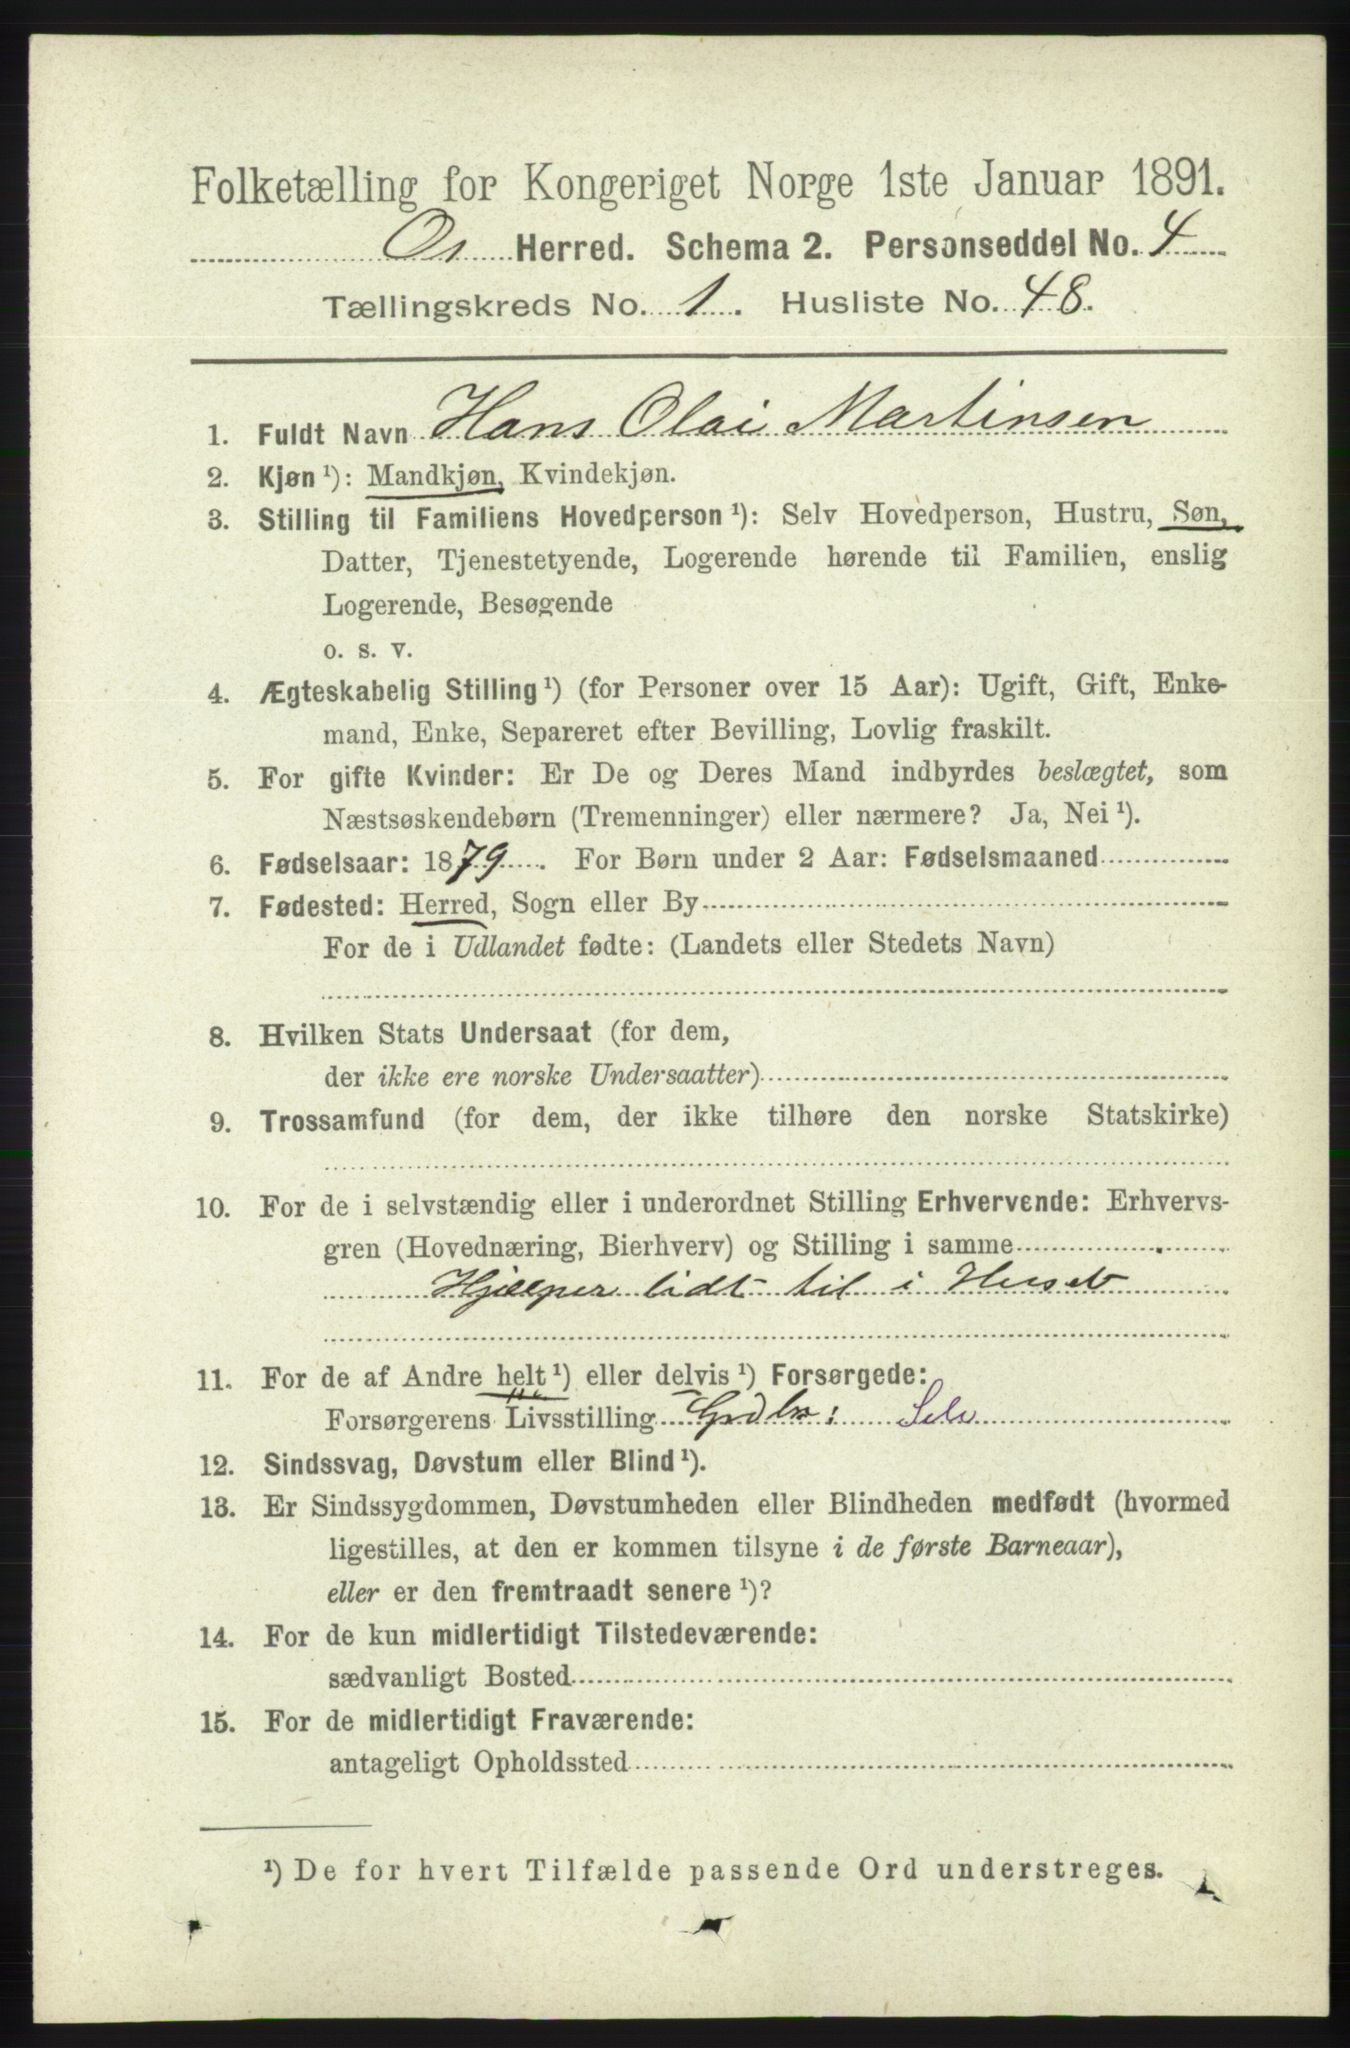 Folketælling for Kongeriget Norge 1ste Januar 1891.
Os Herred. Schema 2. Personseddel No. 4
Tællingskreds No. 1. Husliste No. 48.
1. Fuldt Navn Hans Olai Martinsen
2. Kjøn ¹): Mandkjøn, Kvindekjøn.
3. Stilling til Familiens Hovedperson ¹): Selv Hovedperson, Hustru, Søn,
Datter, Tjenestetyende, Logerende hørende til Familien, enslig
Logerende, Besøgende
o. s. v.
4. Ægteskabelig Stilling ¹) (for Personer over 15 Aar): Ugift, Gift, Enke-
mand, Enke, Separeret efter Bevilling, Lovlig fraskilt.
5. For gifte Kvinder: Er De og Deres Mand indbyrdes beslægtet, som
Næstsøskendebørn (Tremenninger) eller nærmere? Ja, Nei ¹).
6. Fødselsaar: 1879. For Børn under 2 Aar: Fødselsmaaned
7. Fødested: Herred, Sogn eller By
For de i Udlandet fødte: (Landets eller Stedets Navn)
8. Hvilken Stats Undersaat (for dem,
der ikke ere norske Undersaatter)
9. Trossamfund (for dem, der ikke tilhøre den norske Statskirke)
10. For de i selvstændig eller i underordnet Stilling Erhvervende: Erhvervs-
gren (Hovednæring, Bierhverv) og Stilling i samme
Hjælper lidt til i Huset
11. For de af Andre helt ¹) eller delvis ¹) Forsørgede:
Forsørgerens Livsstilling Grdbr: Selv
12. Sindssvag, Døvstum eller Blind ¹).
13. Er Sindssygdommen, Døvstumheden eller Blindheden medfødt (hvormed
ligestilles, at den er kommen tilsyne i de første Barneaar),
eller er den fremtraadt senere ¹)?
14. For de kun midlertidigt Tilstedeværende:
sædvanligt Bosted
15. For de midlertidigt Fraværende:
antageligt Opholdssted
¹) De for hvert Tilfælde passende Ord understreges.